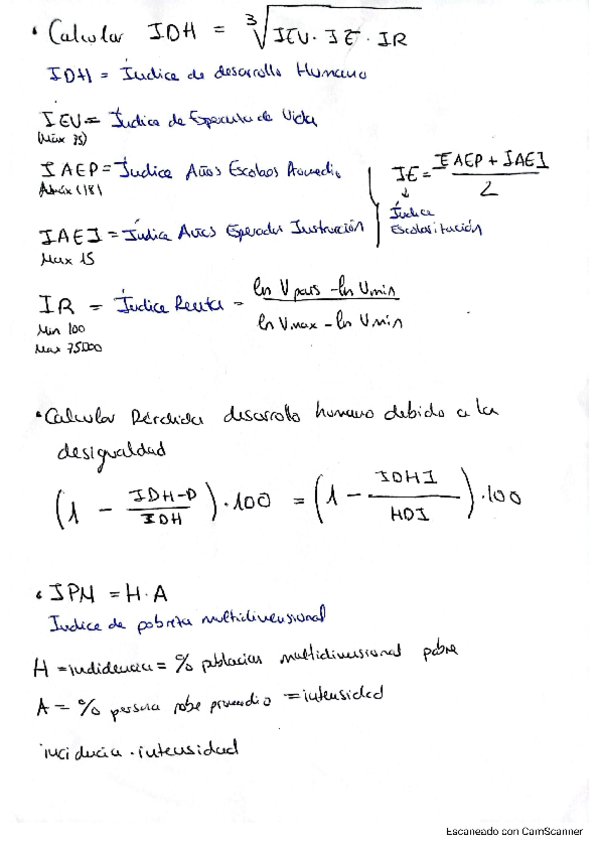 • Calcular IDH = ∛(IEV · IE · IR)
IDH = Índice de desarrollo Humano
IEV = Índice de Esperanza de Vida
(Máx 75)
IAEP = Índice Años Escolares Promedio
Máx (18)
IE = (IAEP + IAEI) / 2
↓
Índice
Escolarización
IAEI = Índice Años Esperados Instrucción
Max 15
IR = Índice Renta = (ln V país - ln Vmin) / (ln Vmax - ln Vmin)
Min 100
Max 75000
• Calcular Pérdida desarrollo humano debido a la
desigualdad
(1 - IDH-D / IDH) · 100 = (1 - IDHI / HDI) · 100
• IPM = H · A
Indice de pobreza multidimensional
H = indidencia = % población multidimensional pobre
A = % persona pobre promedio = intensidad
incidencia · intensidad
Escaneado con CamScanner